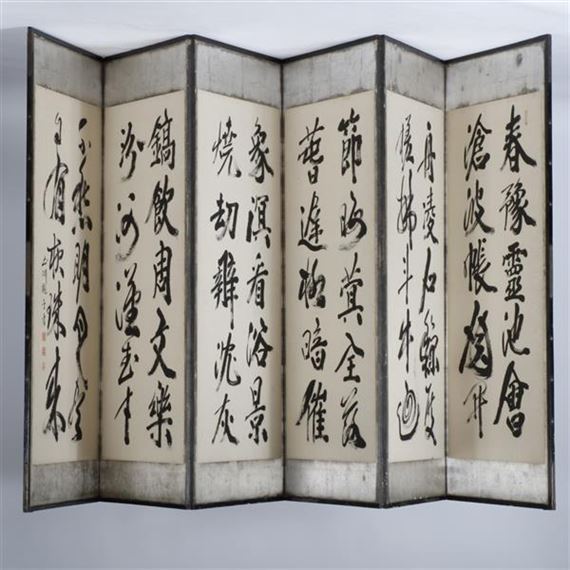 春豫靈池會
滄波帳殿開
舟凌石鯨度
槎拂斗牛迴
節晦蓂全落
春遲柳暗催
象溟看浴景
燒劫辨沈灰
鎬飲周文樂
汾河漢武才
不愁明月盡
自有夜珠來